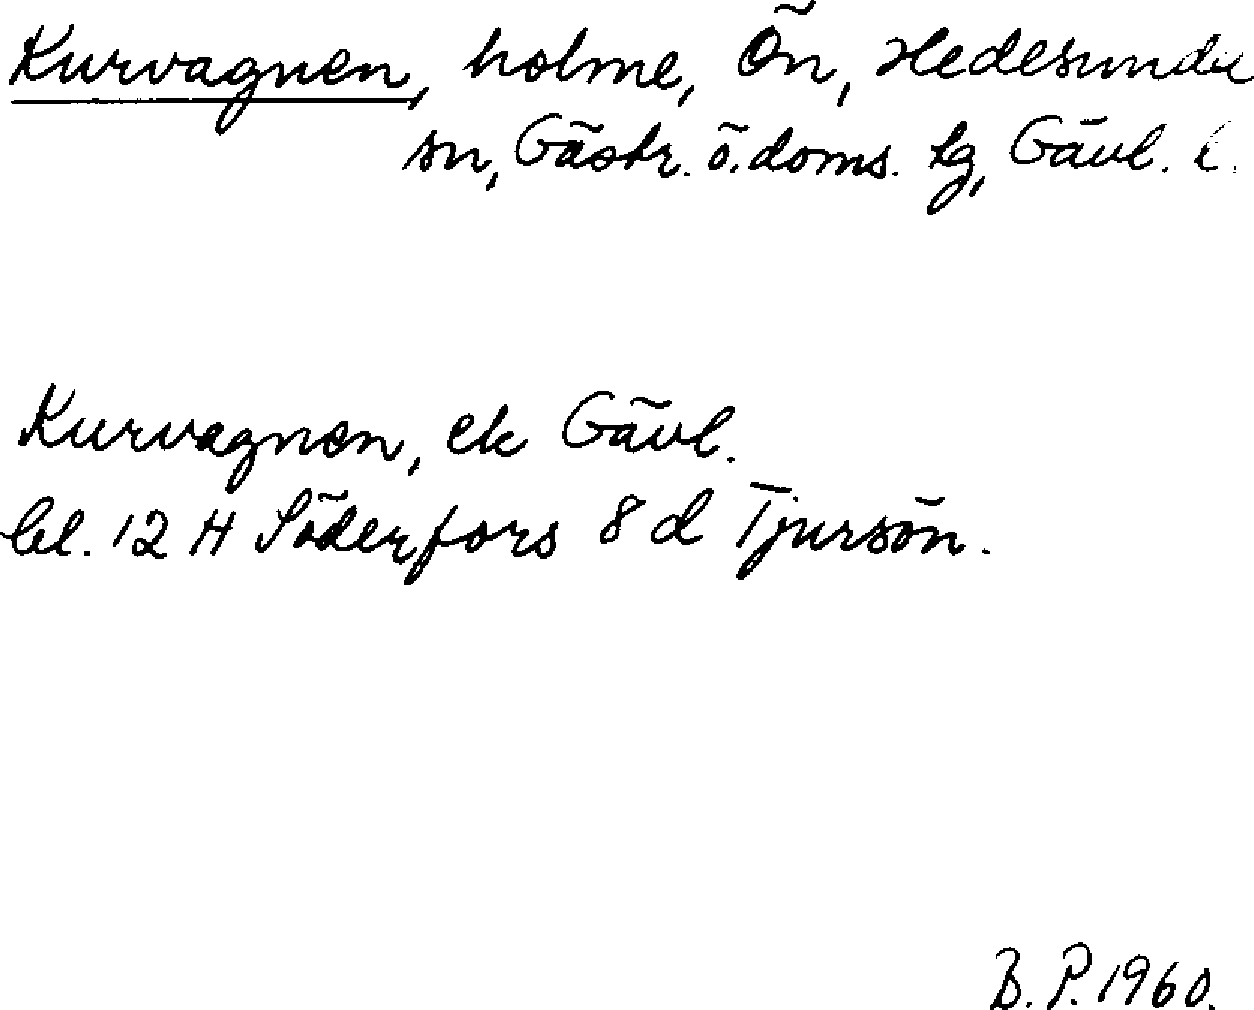 Kurvagnen, holme, Ön, Hedesunda
sn, Gästr. ö. doms. tg, Gävl. l.
Kurvagnen, ek Gävl.
bl. 12 H Söderfors 8 d Tjursön.
B. P. 1960.